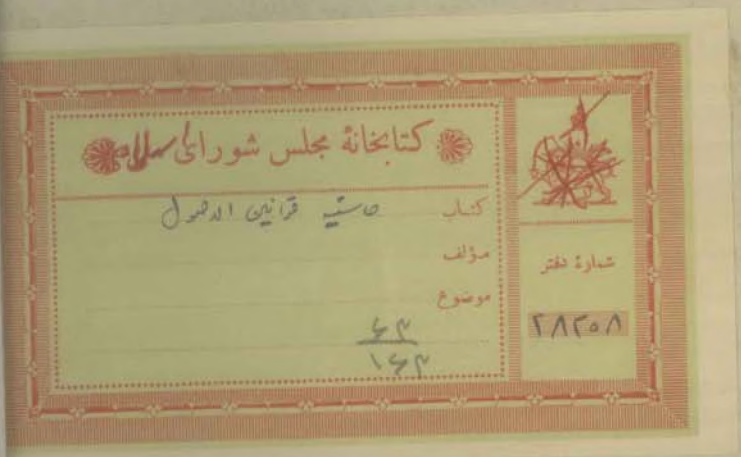 کتابخانهٔ مجلس شورای اسلامی
کتاب حاشیه قوانین الاصول
مؤلف
موضوع
۶۳
۱۶۳
شمارهٔ دفتر
۲۸۲۰۸